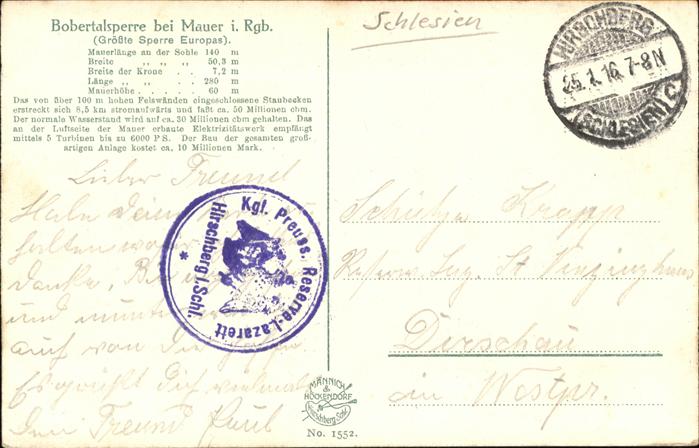 Bobertalsperre bei Mauer i. Rgb.
(Größte Sperre Europas).
Mauerlänge an der Sohle 140 m
Breite „ „ „ 50,3 m
Breite der Krone . . 7,2 m
Länge „ „ . . 280 m
Mauerhöhe . . . . 60 m
Das von über 100 m hohen Felswänden eingeschlossene Staubecken
erstreckt sich 8,5 km stromaufwärts und faßt ca. 50 Millionen cbm.
Der normale Wasserstand wird auf ca. 30 Millionen cbm gehalten. Das
an der Luftseite der Mauer erbaute Elektrizitätswerk empfängt
mittels 5 Turbinen bis zu 6000 PS. Der Bau der gesamten groß-
artigen Anlage kostet ca. 10 Millionen Mark.
Schlesien
HIRSCHBERG
25.1.16. 7-8 N
(SCHLESIEN) C
Lieber Freund
Habe Deine
und
auf von
Es grüßt Dich vielmals
Dein Freund Paul
Kgl. Preuss. Reserve-Lazarett
Hirschberg i. Schl.
*
Schütze Krapp
St.
Dirschau
in Westpr.
MÄNNICH
&
HÖCKENDORF
Hirschberg Schl.
No. 1552.